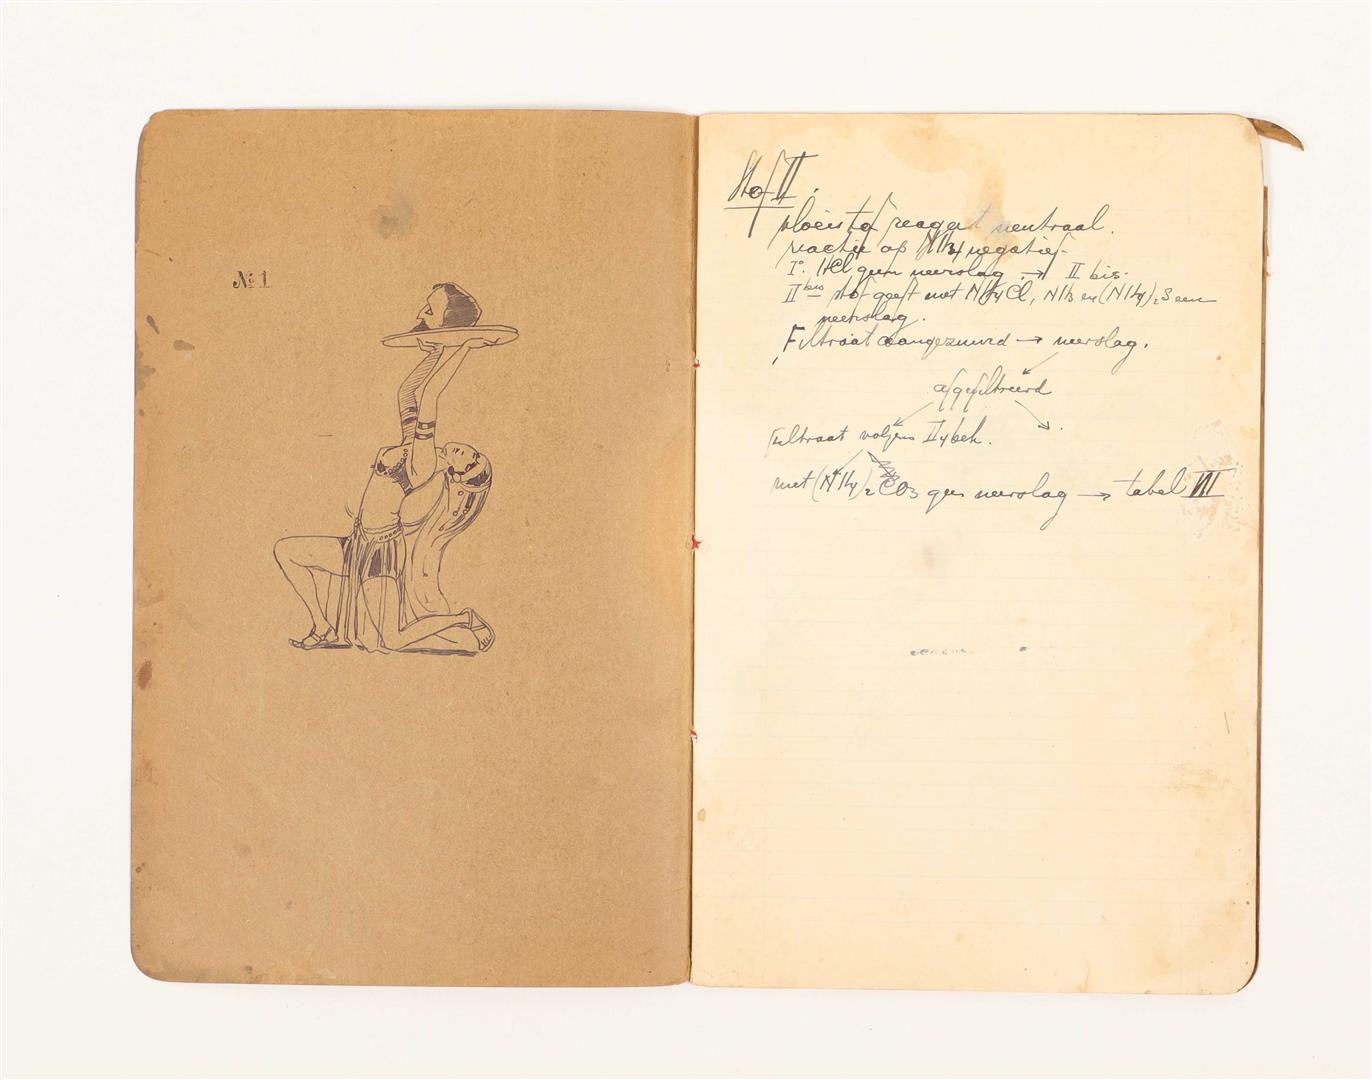 № 1
Stof II.
vloeistof reageert neutraal.
reactie op NH4 negatief.
I°. HCl geen neerslag → II bis.
II bis stof geeft met NH4Cl, NH3 en (NH4)2S een
neerslag.
Filtraat aangezuurd → neerslag.
afgefiltreerd
filtraat volgens II 4 bek.
met (NH4)2CO3 geen neerslag → tabel III